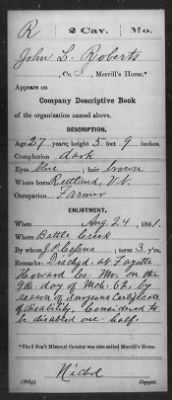 R 2 Cav. Mo.
John L. Roberts
, Co. , Merrill's Horse.*
Appears on
Company Descriptive Book
of the organization named above.
DESCRIPTION.
Age 27 years; height 5 feet 9 inches.
Complexion dark
Eyes blue; hair brown
Where born Rutland, V.t.
Occupation Farmer
ENLISTMENT.
When Aug. 24, 1861.
Where Battle Creek
By whom J. B. ; term 3 y'rs.
Remarks: Dischgd. at Fayette
Howard Co. Mo. on the
9th day of Mch. 62, by
reason of Surgeons Certificate
of disability, Considered to
be disabled one-half.
*The 2 Reg't Missouri Cavalry was also called Merrill's Horse.
Nichol
Copyist.